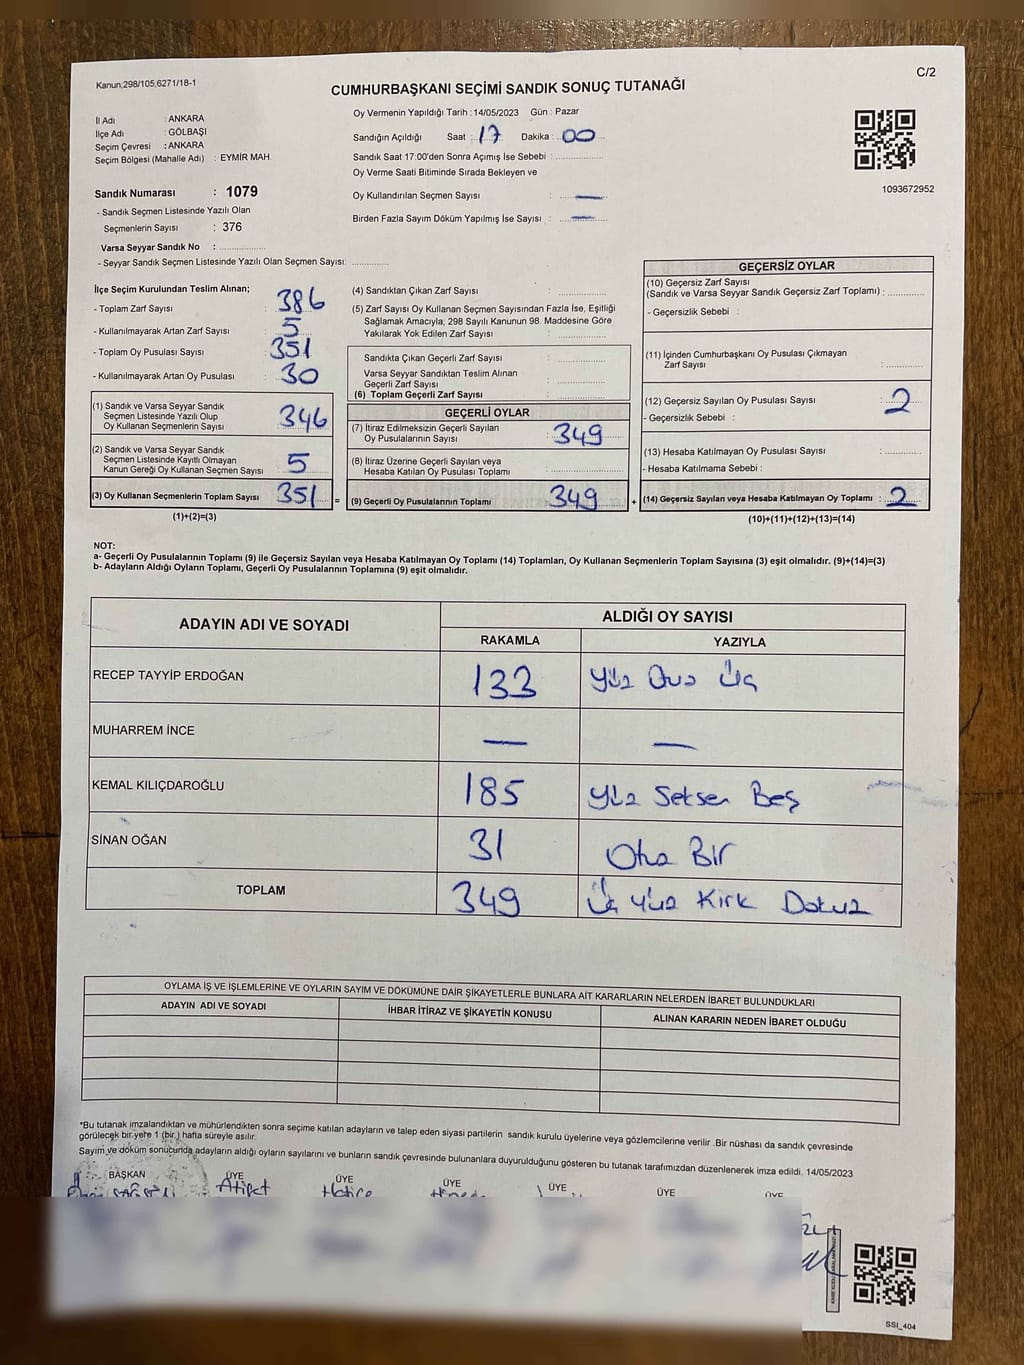 Kanun;298/105,6271/18-1
C/2
CUMHURBAŞKANI SEÇİMİ SANDIK SONUÇ TUTANAĞI
İl Adı : ANKARA
İlçe Adı : GÖLBAŞI
Seçim Çevresi : ANKARA
Seçim Bölgesi (Mahalle Adı) : EYMİR MAH.
Sandık Numarası : 1079
- Sandık Seçmen Listesinde Yazılı Olan
Seçmenlerin Sayısı : 376
Varsa Seyyar Sandık No :
- Seyyar Sandık Seçmen Listesinde Yazılı Olan Seçmen Sayısı:
Oy Vermenin Yapıldığı Tarih : 14/05/2023 Gün : Pazar
Sandığın Açıldığı Saat : 17 Dakika : 00
Sandık Saat 17:00'den Sonra Açımış İse Sebebi :
Oy Verme Saati Bitiminde Sırada Bekleyen ve
Oy Kullandırılan Seçmen Sayısı : —
Birden Fazla Sayım Döküm Yapılmış İse Sayısı : —
1093672952
İlçe Seçim Kurulundan Teslim Alınan;
- Toplam Zarf Sayısı : 386
- Kullanılmayarak Artan Zarf Sayısı : 5
- Toplam Oy Pusulası Sayısı : 351
- Kullanılmayarak Artan Oy Pusulası : 30
(1) Sandık ve Varsa Seyyar Sandık
Seçmen Listesinde Yazılı Olup
Oy Kullanan Seçmenlerin Sayısı 346
(2) Sandık ve Varsa Seyyar Sandık
Seçmen Listesinde Kayıtlı Olmayan
Kanun Gereği Oy Kullanan Seçmen Sayısı 5
(3) Oy Kullanan Seçmenlerin Toplam Sayısı 351 =
(1)+(2)=(3)
(4) Sandıktan Çıkan Zarf Sayısı :
(5) Zarf Sayısı Oy Kullanan Seçmen Sayısından Fazla İse, Eşitliği
Sağlamak Amacıyla; 298 Sayılı Kanunun 98. Maddesine Göre
Yakılarak Yok Edilen Zarf Sayısı :
Sandıkta Çıkan Geçerli Zarf Sayısı :
Varsa Seyyar Sandıktan Teslim Alınan
Geçerli Zarf Sayısı :
(6) Toplam Geçerli Zarf Sayısı :
GEÇERLİ OYLAR
(7) İtiraz Edilmeksizin Geçerli Sayılan
Oy Pusulalarının Sayısı : 349
(8) İtiraz Üzerine Geçerli Sayılan veya
Hesaba Katılan Oy Pusulası Toplamı :
(9) Geçerli Oy Pusulalarının Toplamı : 349 +
GEÇERSİZ OYLAR
(10) Geçersiz Zarf Sayısı
(Sandık ve Varsa Seyyar Sandık Geçersiz Zarf Toplamı) :
- Geçersizlik Sebebi :
(11) İçinden Cumhurbaşkanı Oy Pusulası Çıkmayan
Zarf Sayısı :
(12) Geçersiz Sayılan Oy Pusulası Sayısı : 2
- Geçersizlik Sebebi :
(13) Hesaba Katılmayan Oy Pusulası Sayısı :
- Hesaba Katılmama Sebebi :
(14) Geçersiz Sayılan veya Hesaba Katılmayan Oy Toplamı : 2
(10)+(11)+(12)+(13)=(14)
NOT:
a- Geçerli Oy Pusulalarının Toplamı (9) ile Geçersiz Sayılan veya Hesaba Katılmayan Oy Toplamı (14) Toplamları, Oy Kullanan Seçmenlerin Toplam Sayısına (3) eşit olmalıdır. (9)+(14)=(3)
b- Adayların Aldığı Oyların Toplamı, Geçerli Oy Pusulalarının Toplamına (9) eşit olmalıdır.
ADAYIN ADI VE SOYADI
ALDIĞI OY SAYISI
RAKAMLA YAZIYLA
RECEP TAYYİP ERDOĞAN 133 Yüz Otuz Üç
MUHARREM İNCE — —
KEMAL KILIÇDAROĞLU 185 Yüz Seksen Beş
SİNAN OĞAN 31 Otuz Bir
TOPLAM 349 Üç Yüz Kırk Dokuz
OYLAMA İŞ VE İŞLEMLERİNE VE OYLARIN SAYIM VE DÖKÜMÜNE DAİR ŞİKAYETLERLE BUNLARA AİT KARARLARIN NELERDEN İBARET BULUNDUKLARI
ADAYIN ADI VE SOYADI İHBAR İTİRAZ VE ŞİKAYETİN KONUSU ALINAN KARARIN NEDEN İBARET OLDUĞU
*Bu tutanak imzalandıktan ve mühürlendikten sonra seçime katılan adayların ve talep eden siyasi partilerin sandık kurulu üyelerine veya gözlemcilerine verilir .Bir nüshası da sandık çevresinde
görülecek bir yere 1 (bir) hafta süreyle asılır.
Sayım ve döküm sonucunda adayların aldığı oyların sayılarını ve bunların sandık çevresinde bulunanlara duyurulduğunu gösteren bu tutanak tarafımızdan düzenlenerek imza edildi. 14/05/2023
BAŞKAN ÜYE ÜYE ÜYE ÜYE ÜYE ÜYE
Hatice
SSI_404